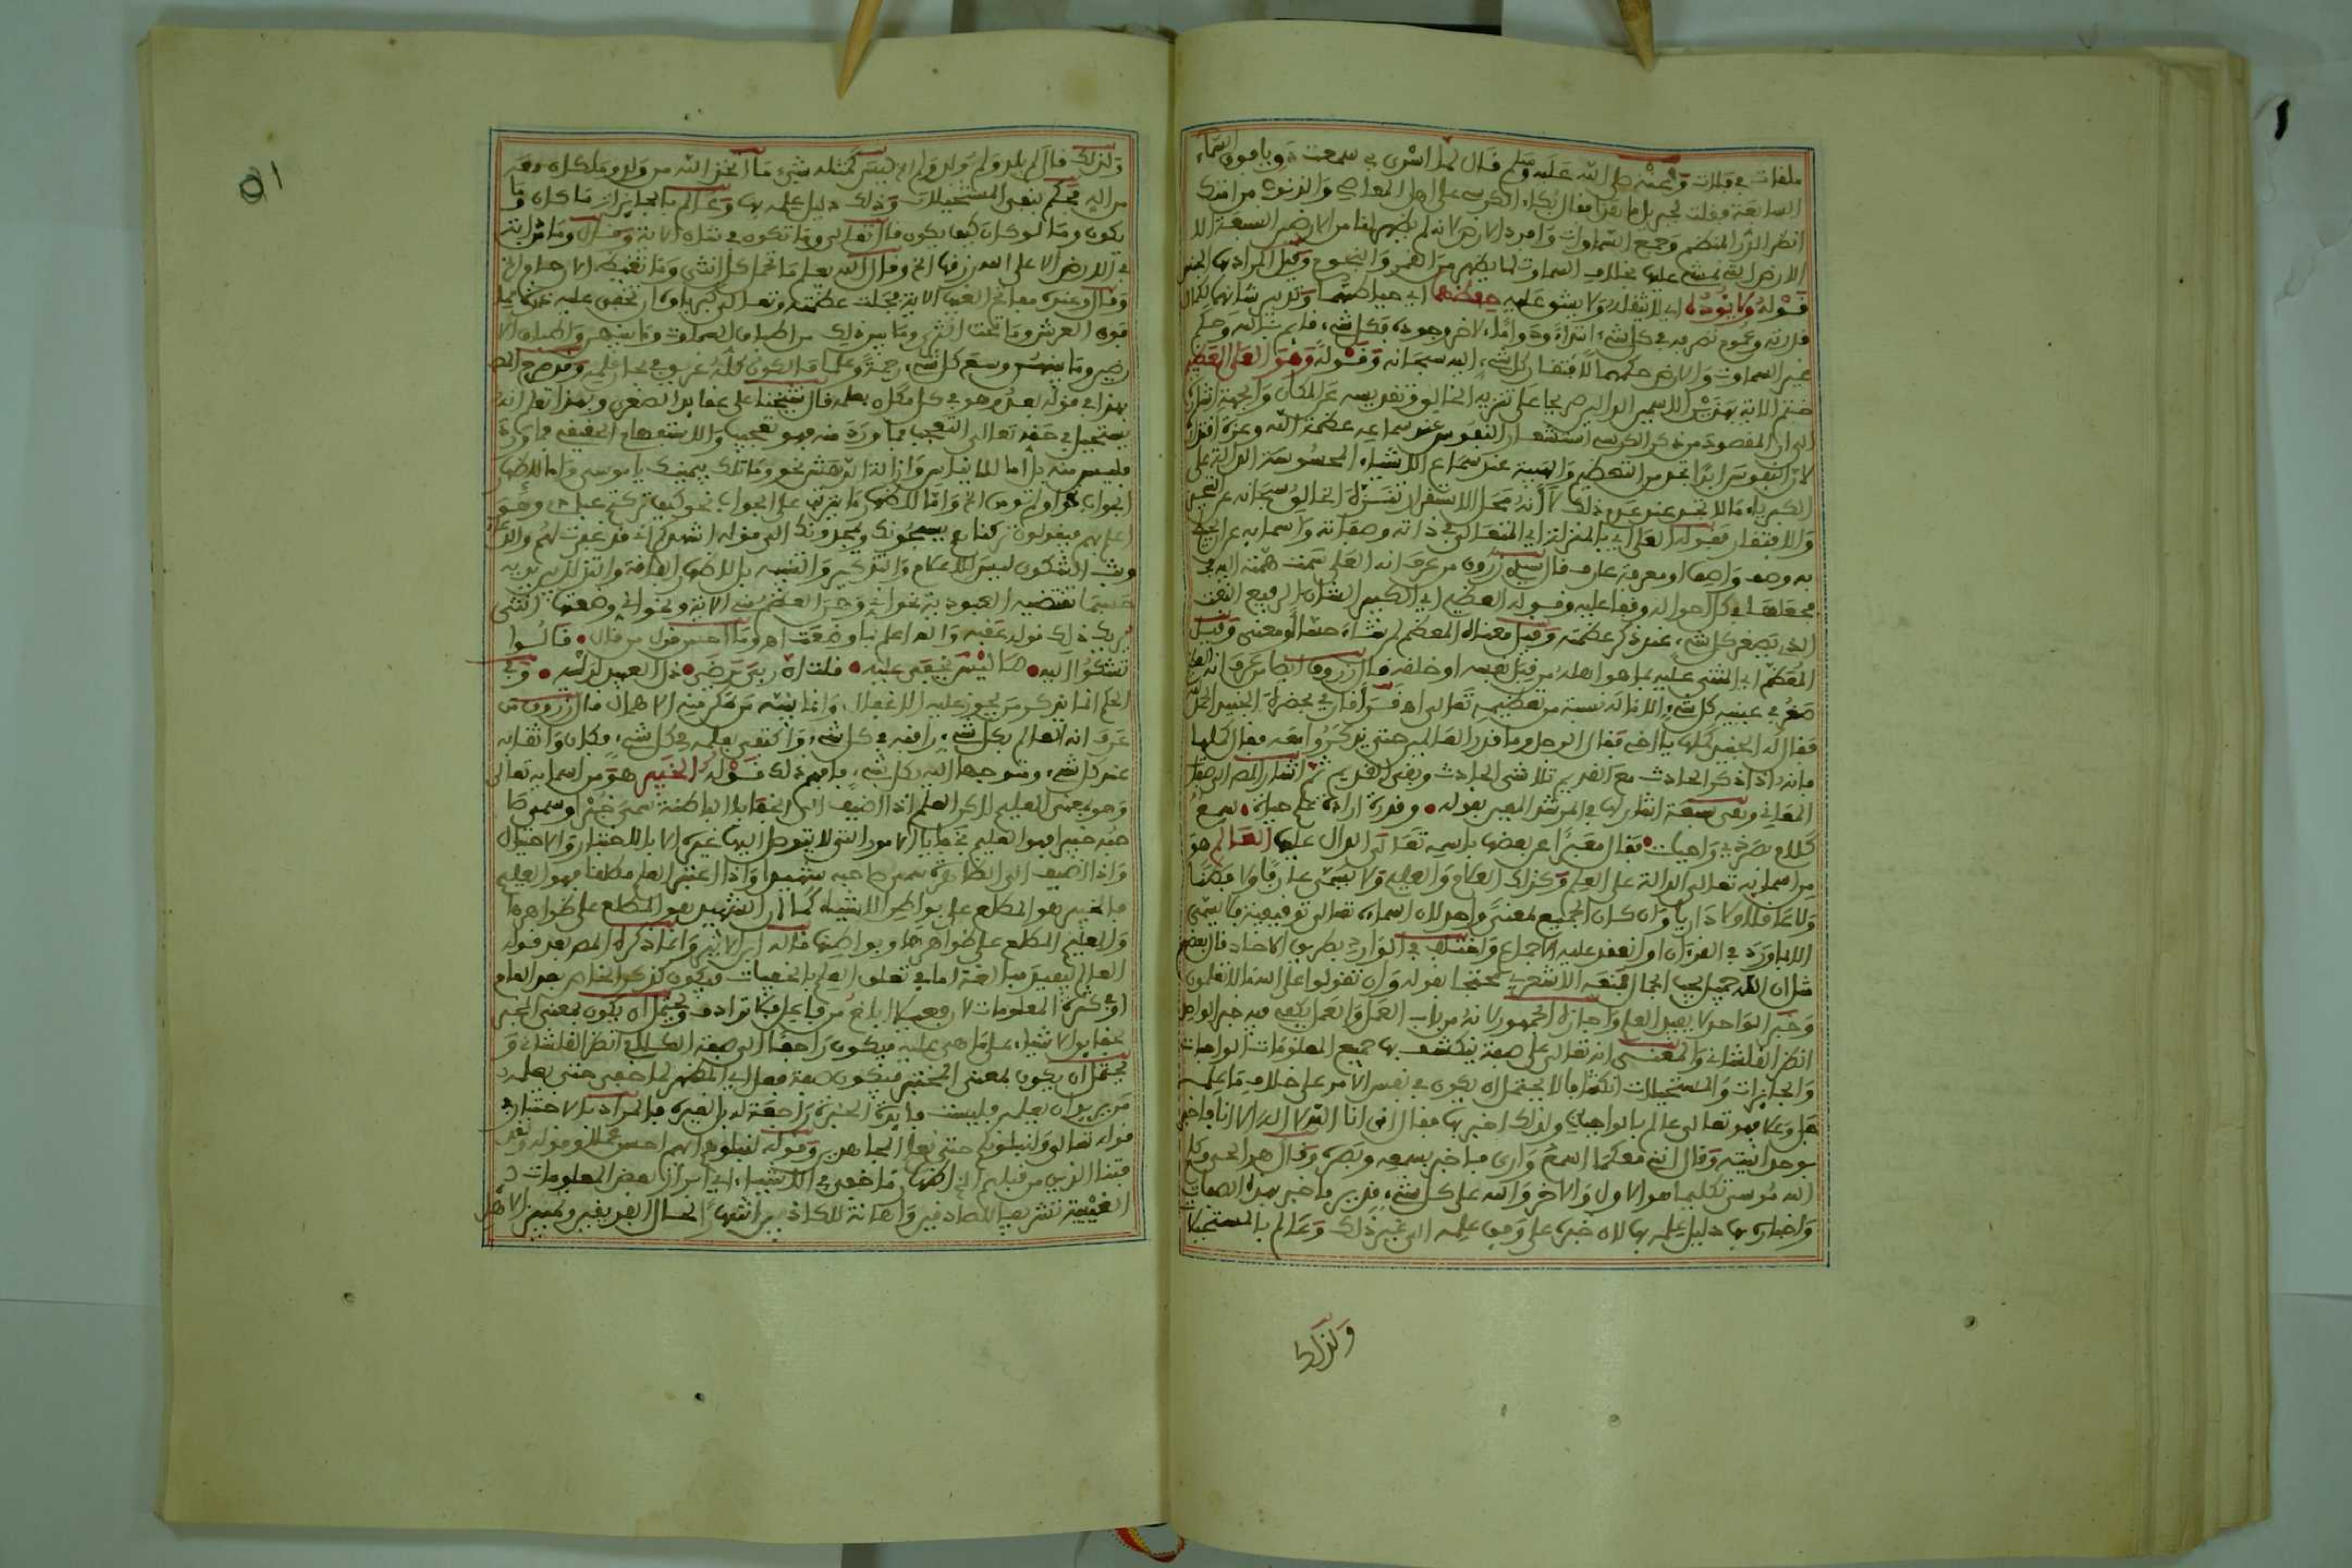 ملقات في فلات وعنه صلى الله عليه وسلم قال لما اسري بي سمعت دويا فوق السماء
السابعة فقلت لجبريل ما هذا فقال بكاء الكرسي على اهل المعاصي والذنوب من امتك
انظر الدر المنظم وجمع السماوات وافرد الارض لانه لم يظهر لنا من الارض السبعة الا
الارض التي نمشي عليها بخلاف السماوات لما يظهر من القمر والنجوم وقيل المراد بها الجنس
قوله ولا يئوده اي لا يثقله ولا يشق عليه حفظهما اي حياطتهما وتدبير شانهما لكمال
قدرته وعموم تصرفه في كل شيء ابتداء ودواما لاخر وجوده فكل شيء قايم بالله وحكم
غير السماوات والارض حكمهما لافتقار كل شيء اليه سبحانه وقوله وهو العلي العظيم
ختم الاية بهذين الاسمين الدالين صريحا على تنزيه الخالق وتقديسه عن المكان والجهة اشارة
الى ان المقصود من ذكر الكرسي استشعار النفوس عند سماعه عظمة الله وعزة
لان النفوس ابدا تجد من التعظيم والهيبة عند سماع الاشياء المحسوسة الدالة على
الكبرياء ما لا تجد عند عدم ذلك لا انه محل الاستقرار تنزه الخالق سبحانه عن التحيز
والافتقار فقوله العلي اي بالمنزلة اي المتعالي في ذاته وصفاته واسمايه عن
به وصف واصف او معرفة عارف قال سيدي زروق من عرف انه العلي سمت همته اليه في
فجعلها في كل احواله وقفا عليه وقوله العظيم اي الكبير الشان الرفيع القدر
الذي يصغر كل شيء عند ذكر عظمته وقيل معناه المعظم لم نشاء حسا او معنى وقيل
المعظم اي المثنى عليه بما هو اهله من قبل نفسه او خلقه قال زروق ايضا من عرف انه العظيم
صغر في عينه كل شيء الا ما له نسبة من تعظيمه تعالى اه
فقال له الجنيد كلها يا اخي فقال الرجل وما قدر العالمين حتى يذكروا معه فقال كلها
فانه اذا ذكر الحادث مع القديم تلاشى الحادث وبقي القديم ثم اشار المص الى صفات
المعاني وهي سبعة اشار لها في المرشد المعين بقوله • وقدرة ارادة علم حياة • سمع
كلام بصر ذي واجبات • فقال معبرا عن بعضها باسمه تعالى الدال عليها العالم هو
من اسمايه تعالى الدالة على العلم وكذلك العلام والعليم ولا يسمى عارفا ولا فطنا
ولا عاقلا ولا داريا وان كان الجميع لمعنى واحد لان اسماءه تعالى توقيفية فلا يسمى
الا بما ورد في القرءان او انعقد عليه الاجماع واختلف في الوارد بطريق الاحاد قال بعض
مثل ان الله جميل يحب الجمال فمنعه الاشعري محتجا بقوله وان تقولوا على الله ما لا تعلمون
وخبر الواحد لا يفيد العلم واجازه الجمهور لانه من باب العمل والعمل يكفي فيه خبر الواحد
انظر الفلشاني والمعنى انه تعالى على صفة ينكشف بها جميع المعلومات الواجبات
والجايزات والمستحيلات انكشافا لا يحتمل ان يكون في نفس الامر على خلاف ما علمه
جل وعلا فهو تعالى عالم بالواجبات ولذلك اخبر بها فقال انني انا الله لا اله الا انا فاخبر
بوحدانيته وقال انني معكما اسمع وارى فاخبر بسمعه وبصره وقال هو الحي وكلم
الله موسى تكليما هو الاول والاخر والله على كل شيء قدير فاخبر بهذه الصفات
واخباره بها دليل علمه بها لان خبره على وفق علمه الى غير ذلك وعالم بالمستحيلات
ولذلك
ولذلك قال لم يلد ولم يولد ولم الخ ليس كمثله شيء ما اتخذ الله من ولد وما كان معه
من اله فحكم بنفي المستحيلات وذلك دليل علمه بها وعالم بالجايزات ما كان وما
يكون وما لو كان كيف يكون قال تعالى وما تكون في شان الاية وقال وما من دابة
في الارض الا على الله رزقها الخ وقال الله يعلم ما تحمل كل انثى وما تغيض الارحام الخ
وقال وعنده مفاتح الغيب الاية فجلت عظمته وتعالى كبرياؤه ان تخفى عليه
فوق العرش وما تحت الثرى وما بين ذلك من اطباق السماوات وما بينهن واطباق الا
رضين وما بينهن وسع كل شيء رحمة وعلما
بهذا في قوله بعد وهو في كل مكان بعلمه قال شيخنا على عقايد الصغرى وبهذا تعلم انه
يستحيل في حقه تعالى التعجب فما ورد منه فهو تعجيب والاستفهام الحقيقي فما ورد
فليس منه بل اما للتقرير وازالة الدهشة نحو وما تلك بيمينك يا موسى واما لاظهار
الجواب نحو اولم تومن الخ واما لاظهار ما يترتب على الجواب نحو كيف تركتم عبادي وهو
اعلم بهم فيقولون تركناهم يسبحونك ويحمدونك الى قوله اشهدكم اني قد غفرت لهم والدعاء
وبث الشكوى ليس للاعلام والتذكير والتنبيه بل لاظهار الفاقة والتذلل بين يديه
حسبما تقتضيه العبودية نحو اني وهن العظم مني الاية ونحو اني وضعتها انثى
يريك ذلك قوله عقبه والله اعلم بما وضعت اه وما احسن قول من قال • قالوا
تشكو اليه • ما ليس يخفى عليه • فقلت ان ربي يرضى • ذل العبيد لديه • وفي
الحكم انما يذكر من يجوز عليه الاغفال وانما ينبه من يمكن منه الاهمال قال زروق من
عرف انه العالم بكل شيء راقبه في كل شيء واكتفى بعلمه في كل شيء فكان واثقا به
عند كل شيء ومتوجها اليه بكل شيء فافهم ذلك قوله الخبير هو من اسمايه تعالى
وهو بمعنى العليم لاكن العلم اذا اضيف الى الخفايا الباطنة سمي خبرا وسمي صا
حبه خبيرا فهو العليم بخفايا الامور التي لا يتوصل اليها غيره الا بالاختبار والاحتيال
واذا اضيف الى الظاهرة سمي صاحبه شهيدا واذا اعتبر العلم مطلقا فهو العليم
فالخبير هو المطلع على بواطن الاشياء كما ان الشهيد هو المطلع على ظواهرها
والعليم المطلع على ظواهرها وبواطنها قاله ابن الاثير وانما ذكره المص بعد قوله
العالم ليفيد مبالغة اما في تعلق العلم بالخفيات فيكون كذكر الخاص بعد العام
او في كثرة المعلومات لان فعيلا ابلغ من فاعل فلا ترادف ويحتمل ان يكون بمعنى المخبر
بحقايق الاشياء على ما هي عليه فيكون راجعا الى صفة الكلام انظر الفلشاني و
يحتمل ان يكون بمعنى المختبر فيكون صفة فعل اي المظهر لما خفي حتى يعلمه
من يريد ان يعلمه فليست فايدة الخبرة راجعة له بل لغيره فالمراد بالاختبار في
قوله تعالى ولنبلونكم حتى نعلم المجاهدين وقوله لنبلوهم ايهم احسن عملا وقوله ولقد
فتنا الذين من قبلهم اي اظهار ما خفي في الاشياء اي ابراز بعض المعلومات
الغيبية تشريفا للصادقين واهانة للكاذبين